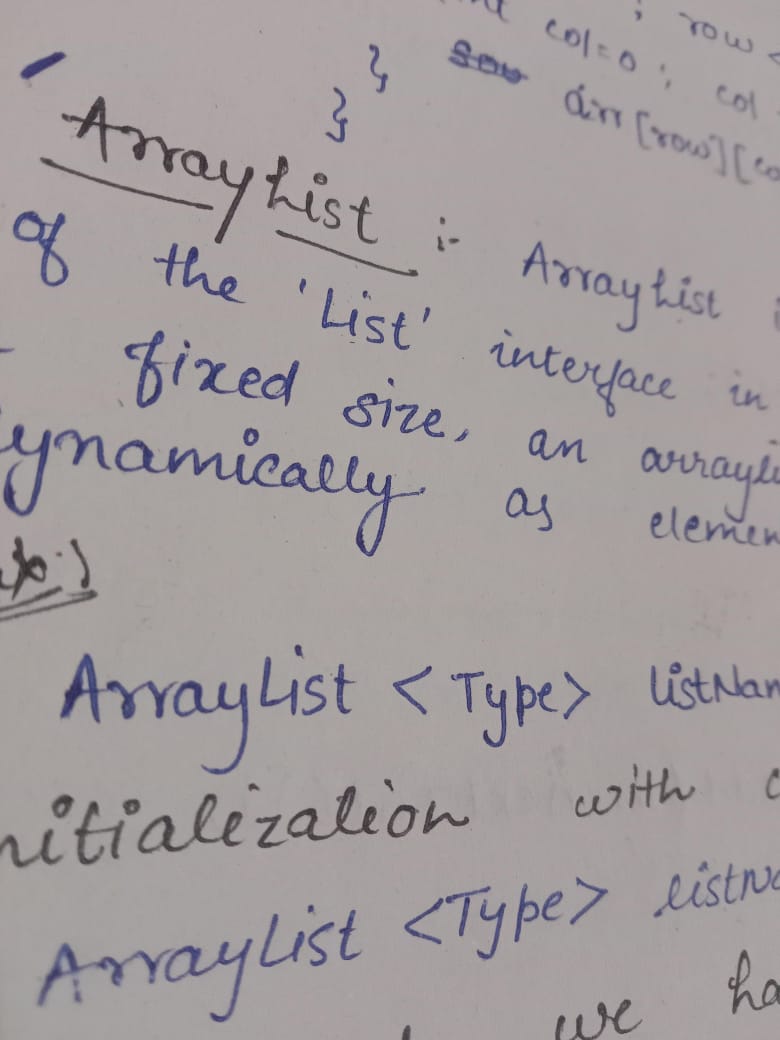 ; row <
col=0; col
} arr[row][co
}
ArrayList :- ArrayList
of the 'List' interface in
fixed size, an arrayli
ynamically as elemen
ArrayList <Type> listNam
nitialization with c
ArrayList <Type> listNa
we ha